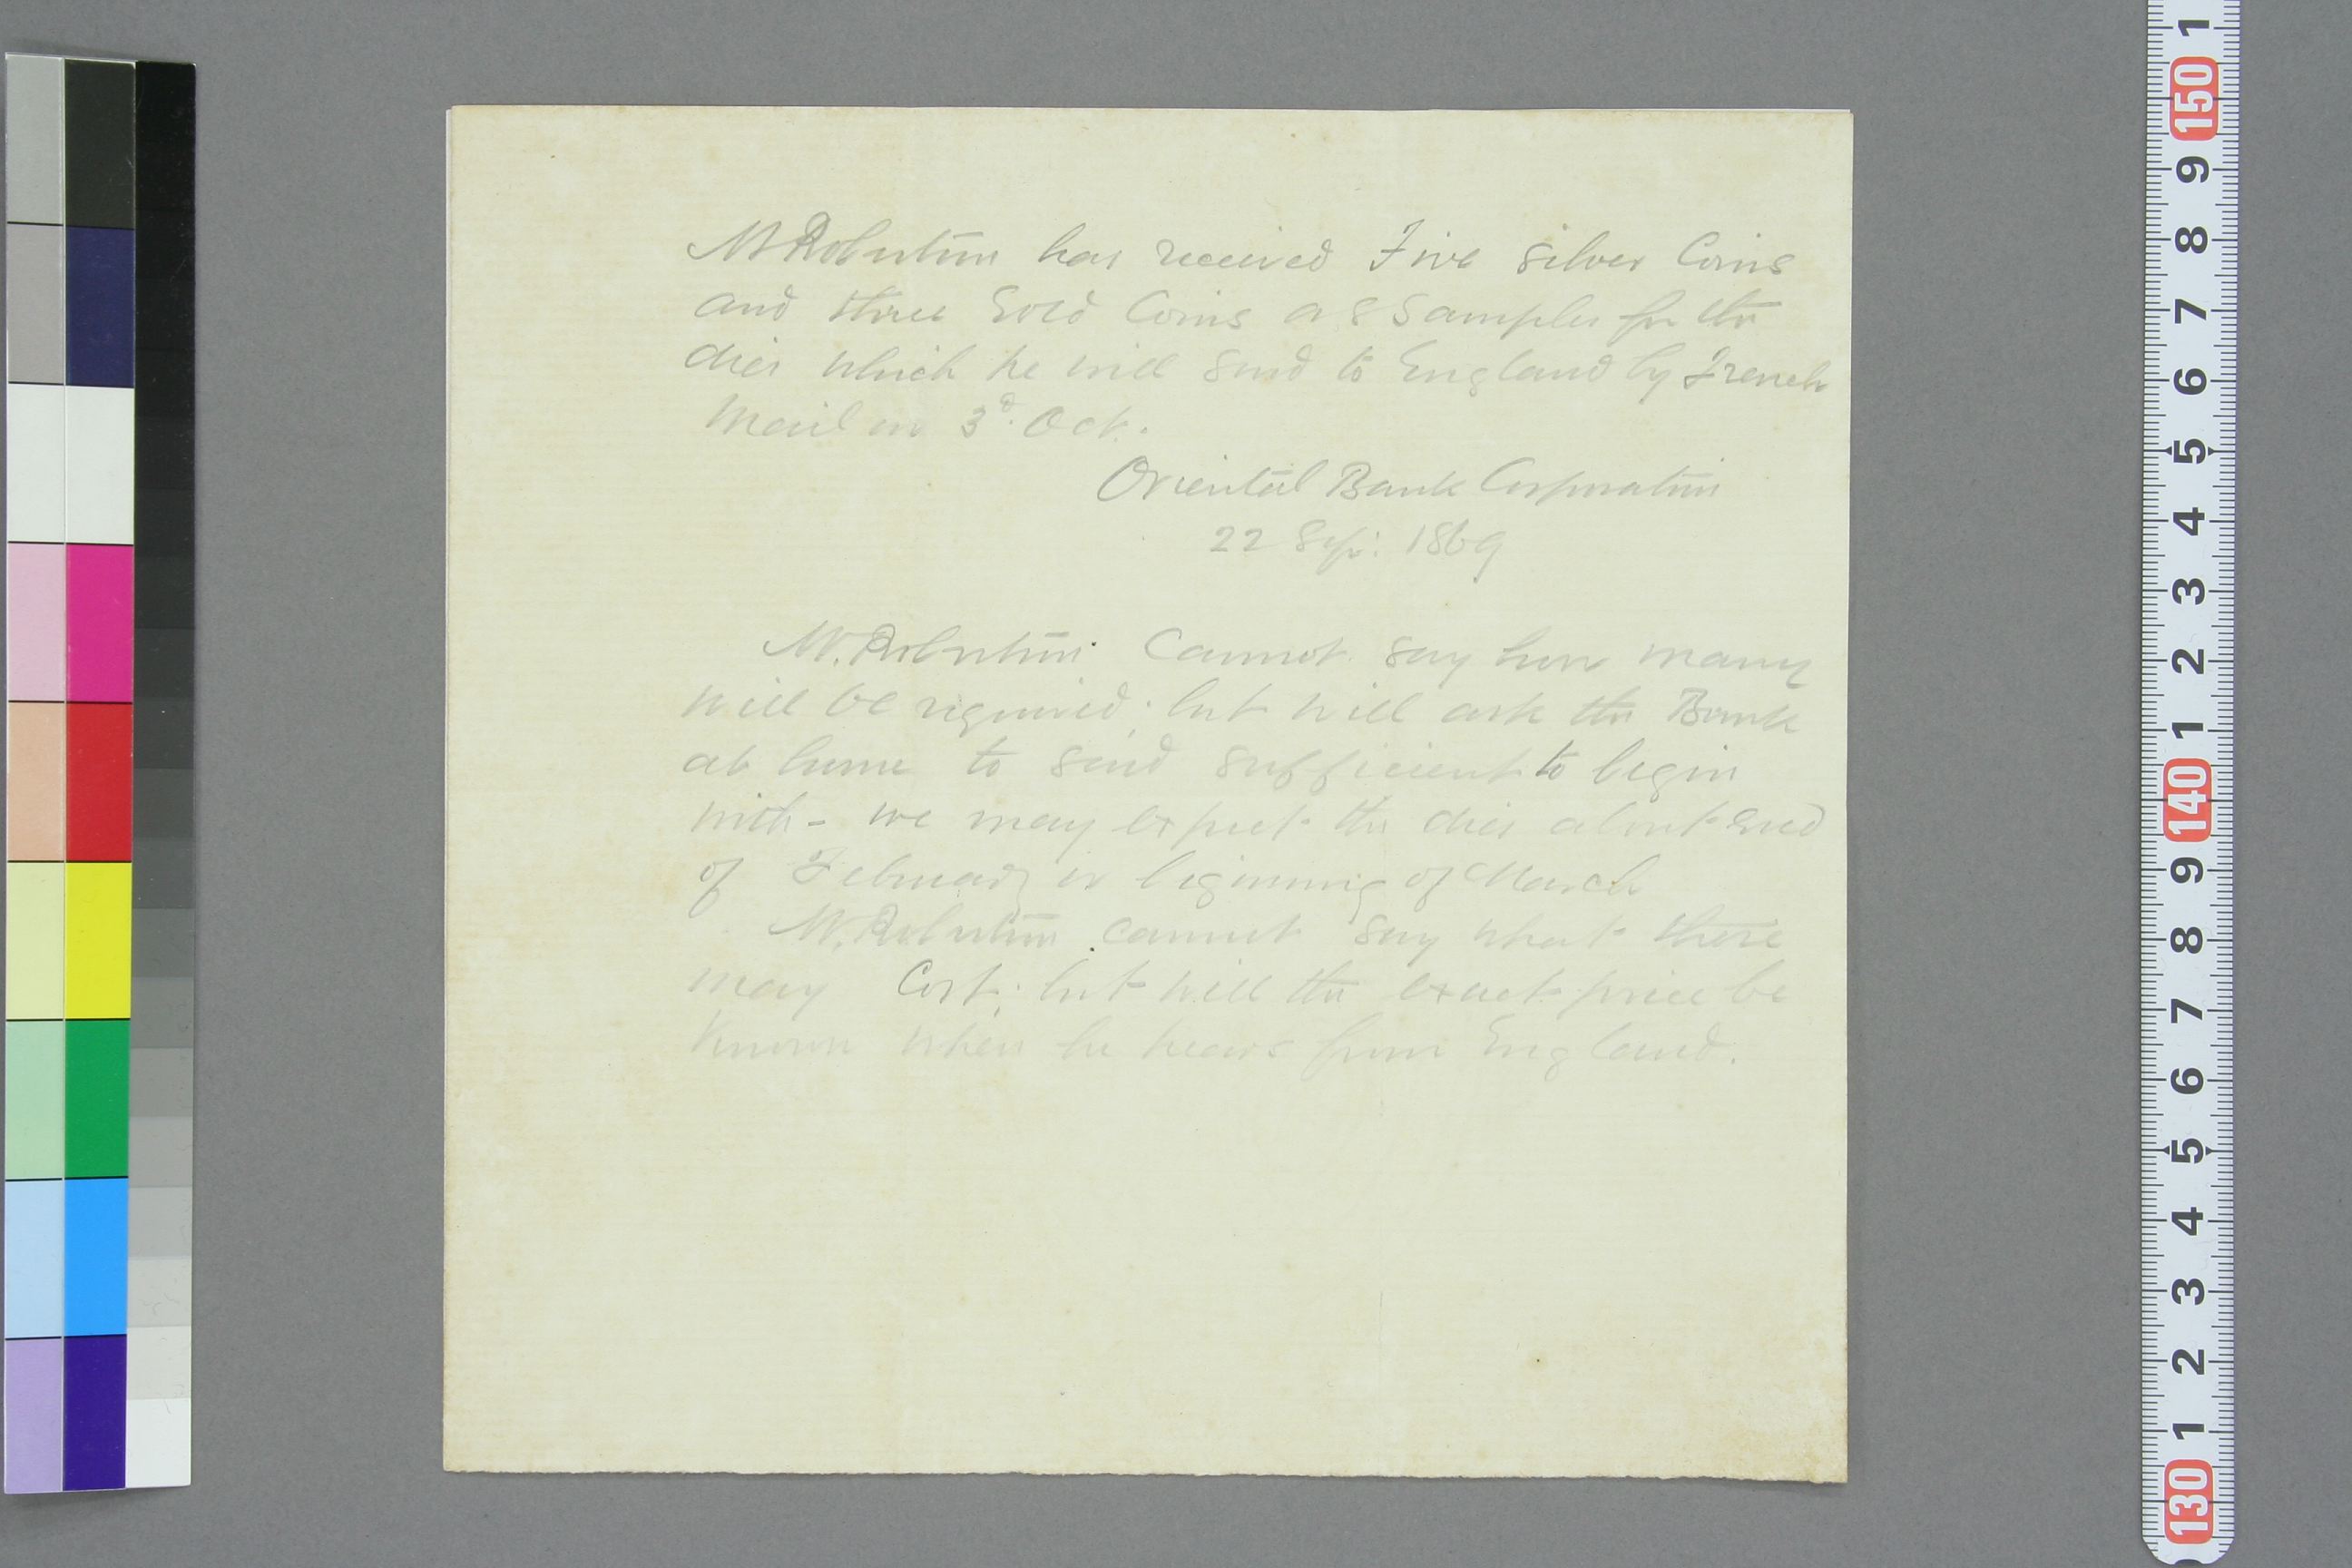 Mr Robertson has received Five silver Coins
and three Gold Coins as Samples for the
dies which he will send to England by French
Mail on 3d. Oct.
Oriental Bank Corporation
22 Sep: 1869
Mr. Robertson Cannot say how many
will be required; but will ask the Bank
at home to send sufficient to begin
with - we may expect the dies about end
of February or beginning of March
Mr. Robertson cannot say what these
may Cost; but will the exact price be
known when he hears from England.
1
150
9
8
7
6
5
4
3
2
1
140
9
8
7
6
5
4
3
2
1
130